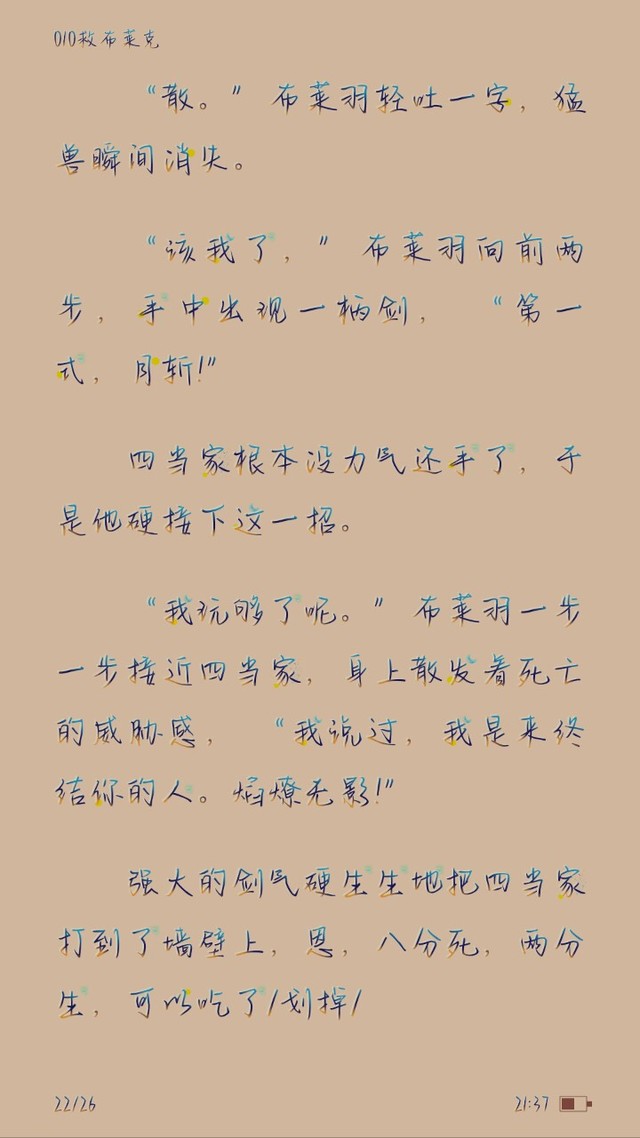 010救布莱克
“散。”布莱羽轻吐一字，猛
兽瞬间消失。
“该我了，”布莱羽向前两
步，手中出现一柄剑，“第一
式，月斩!”
四当家根本没力气还手了，于
是他硬接下这一招。
“我玩够了呢。”布莱羽一步
一步接近四当家，身上散发着死亡
的威胁感，“我说过，我是来终
结你的人。焰燎无影!”
强大的剑气硬生生地把四当家
打到了墙壁上，恩，八分死，两分
生，可以吃了/划掉/
22/26
21:37